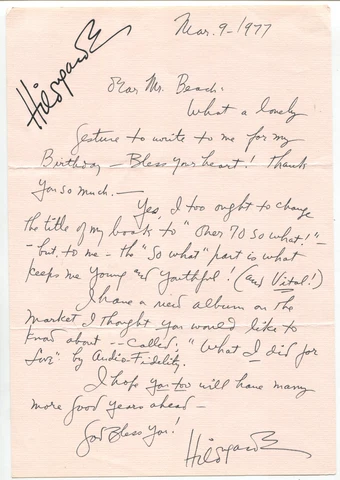 Mar. 9-1977
Hildegarde
Dear Mr. Beach:
What a lovely
gesture to write to me for my
Birthday - Bless your heart! Thank
you so much. -
Yes, I too ought to change
the title of my book to "Over 70 So what!" -
- but to me - the "So what" part is what
keeps me young and youthful! (and Vital!)
I have a new album on the
Market I thought you would like to
Know about -- Called: "What I did for
Love" by Audio-Fidelity.
I hope you too will have many
more good years ahead -
God Bless You!
Hildegarde